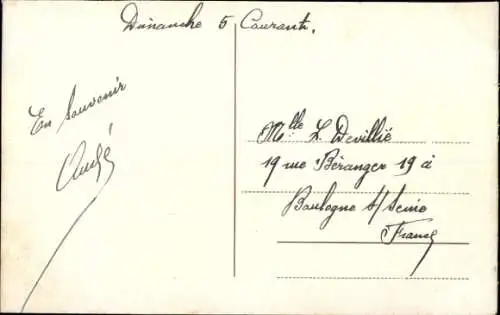 Dimanche 5 Courant.
En Souvenir
André
Mlle L. Devillié
19 rue Béranger 19 à
Boulogne s/ Seine
France